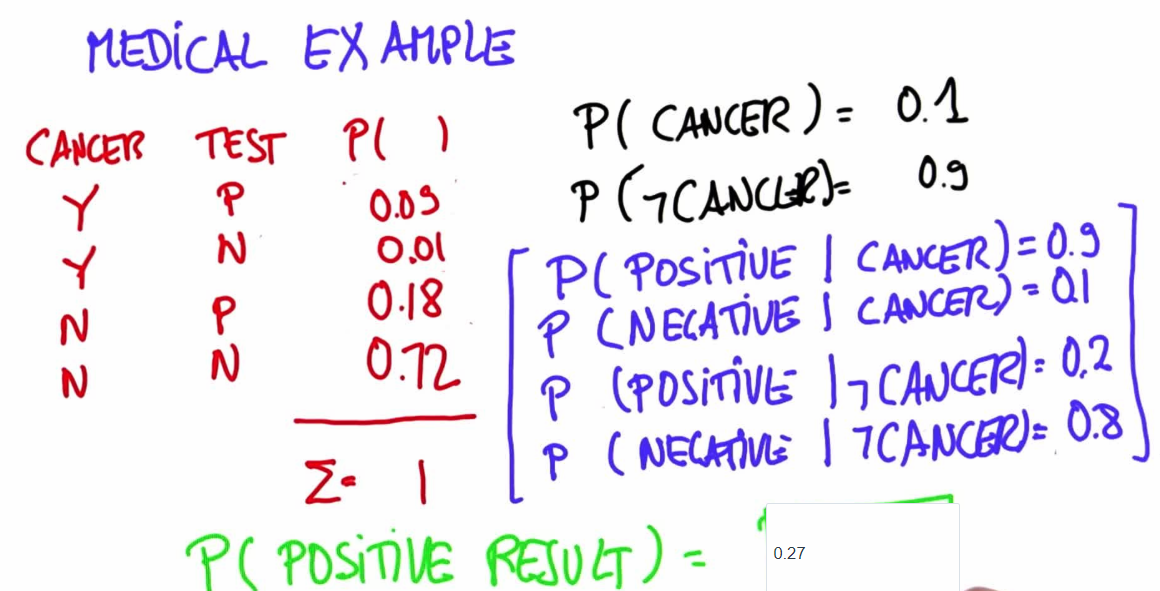 MEDICAL EXAMPLE
CANCER TEST P( )
Y P 0.09
Y N 0.01
N P 0.18
N N 0.72
Σ= 1
P( CANCER ) = 0.1
P (¬CANCER)= 0.9
P( POSITIVE | CANCER)=0.9
P (NEGATIVE | CANCER) = 0.1
P (POSITIVE |¬CANCER)= 0.2
P (NEGATIVE | ¬CANCER)= 0.8
P( POSITIVE RESULT) = 0.27